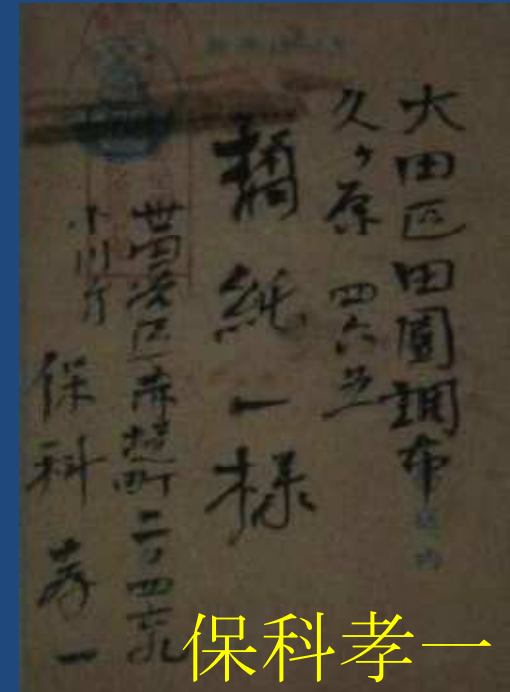 大田区田園調布
久ヶ原 四六〇
橘 純一様
世田谷区赤堤町二ノ四七九
小川方
保科孝一
保科孝一